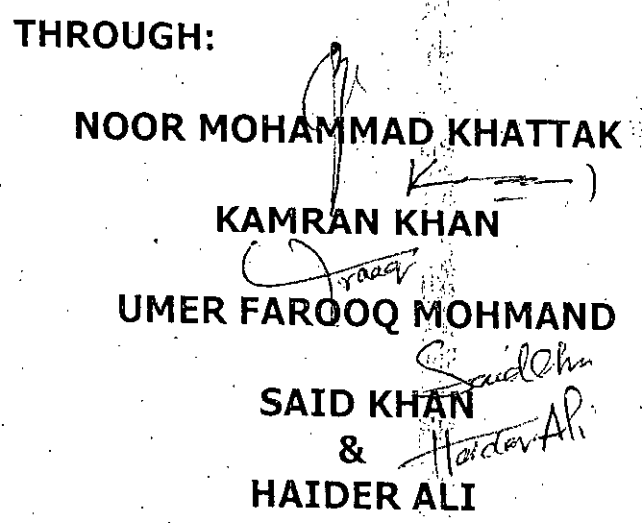 THROUGH:
NOOR MOHAMMAD KHATTAK
KAMRAN KHAN
UMER FAROOQ MOHMAND
SAID KHAN
&
Haider Ali
HAIDER ALI